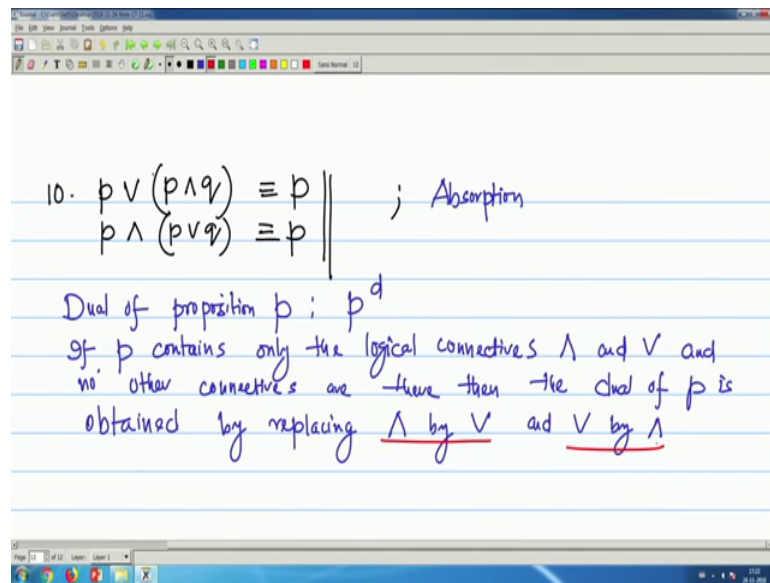 File Edit View Journal Tools Options Help
Sans Normal 12
10. p ∨ (p ∧ q) ≡ p
; Absorption
p ∧ (p ∨ q) ≡ p
Dual of proposition p : p^d
If p contains only the logical connectives ∧ and ∨ and
no other connectives are there then the dual of p is
obtained by replacing ∧ by ∨ and ∨ by ∧
Page 12 of 12 Layer: Layer 1
17:22